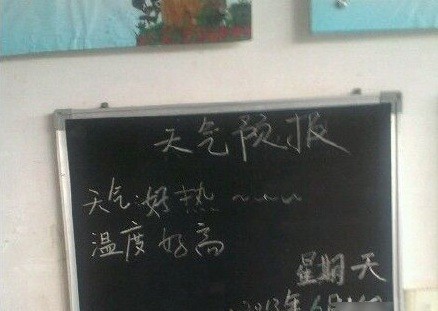 天气预报
天气:好热~~~
温度好高
星期天
2013年6月